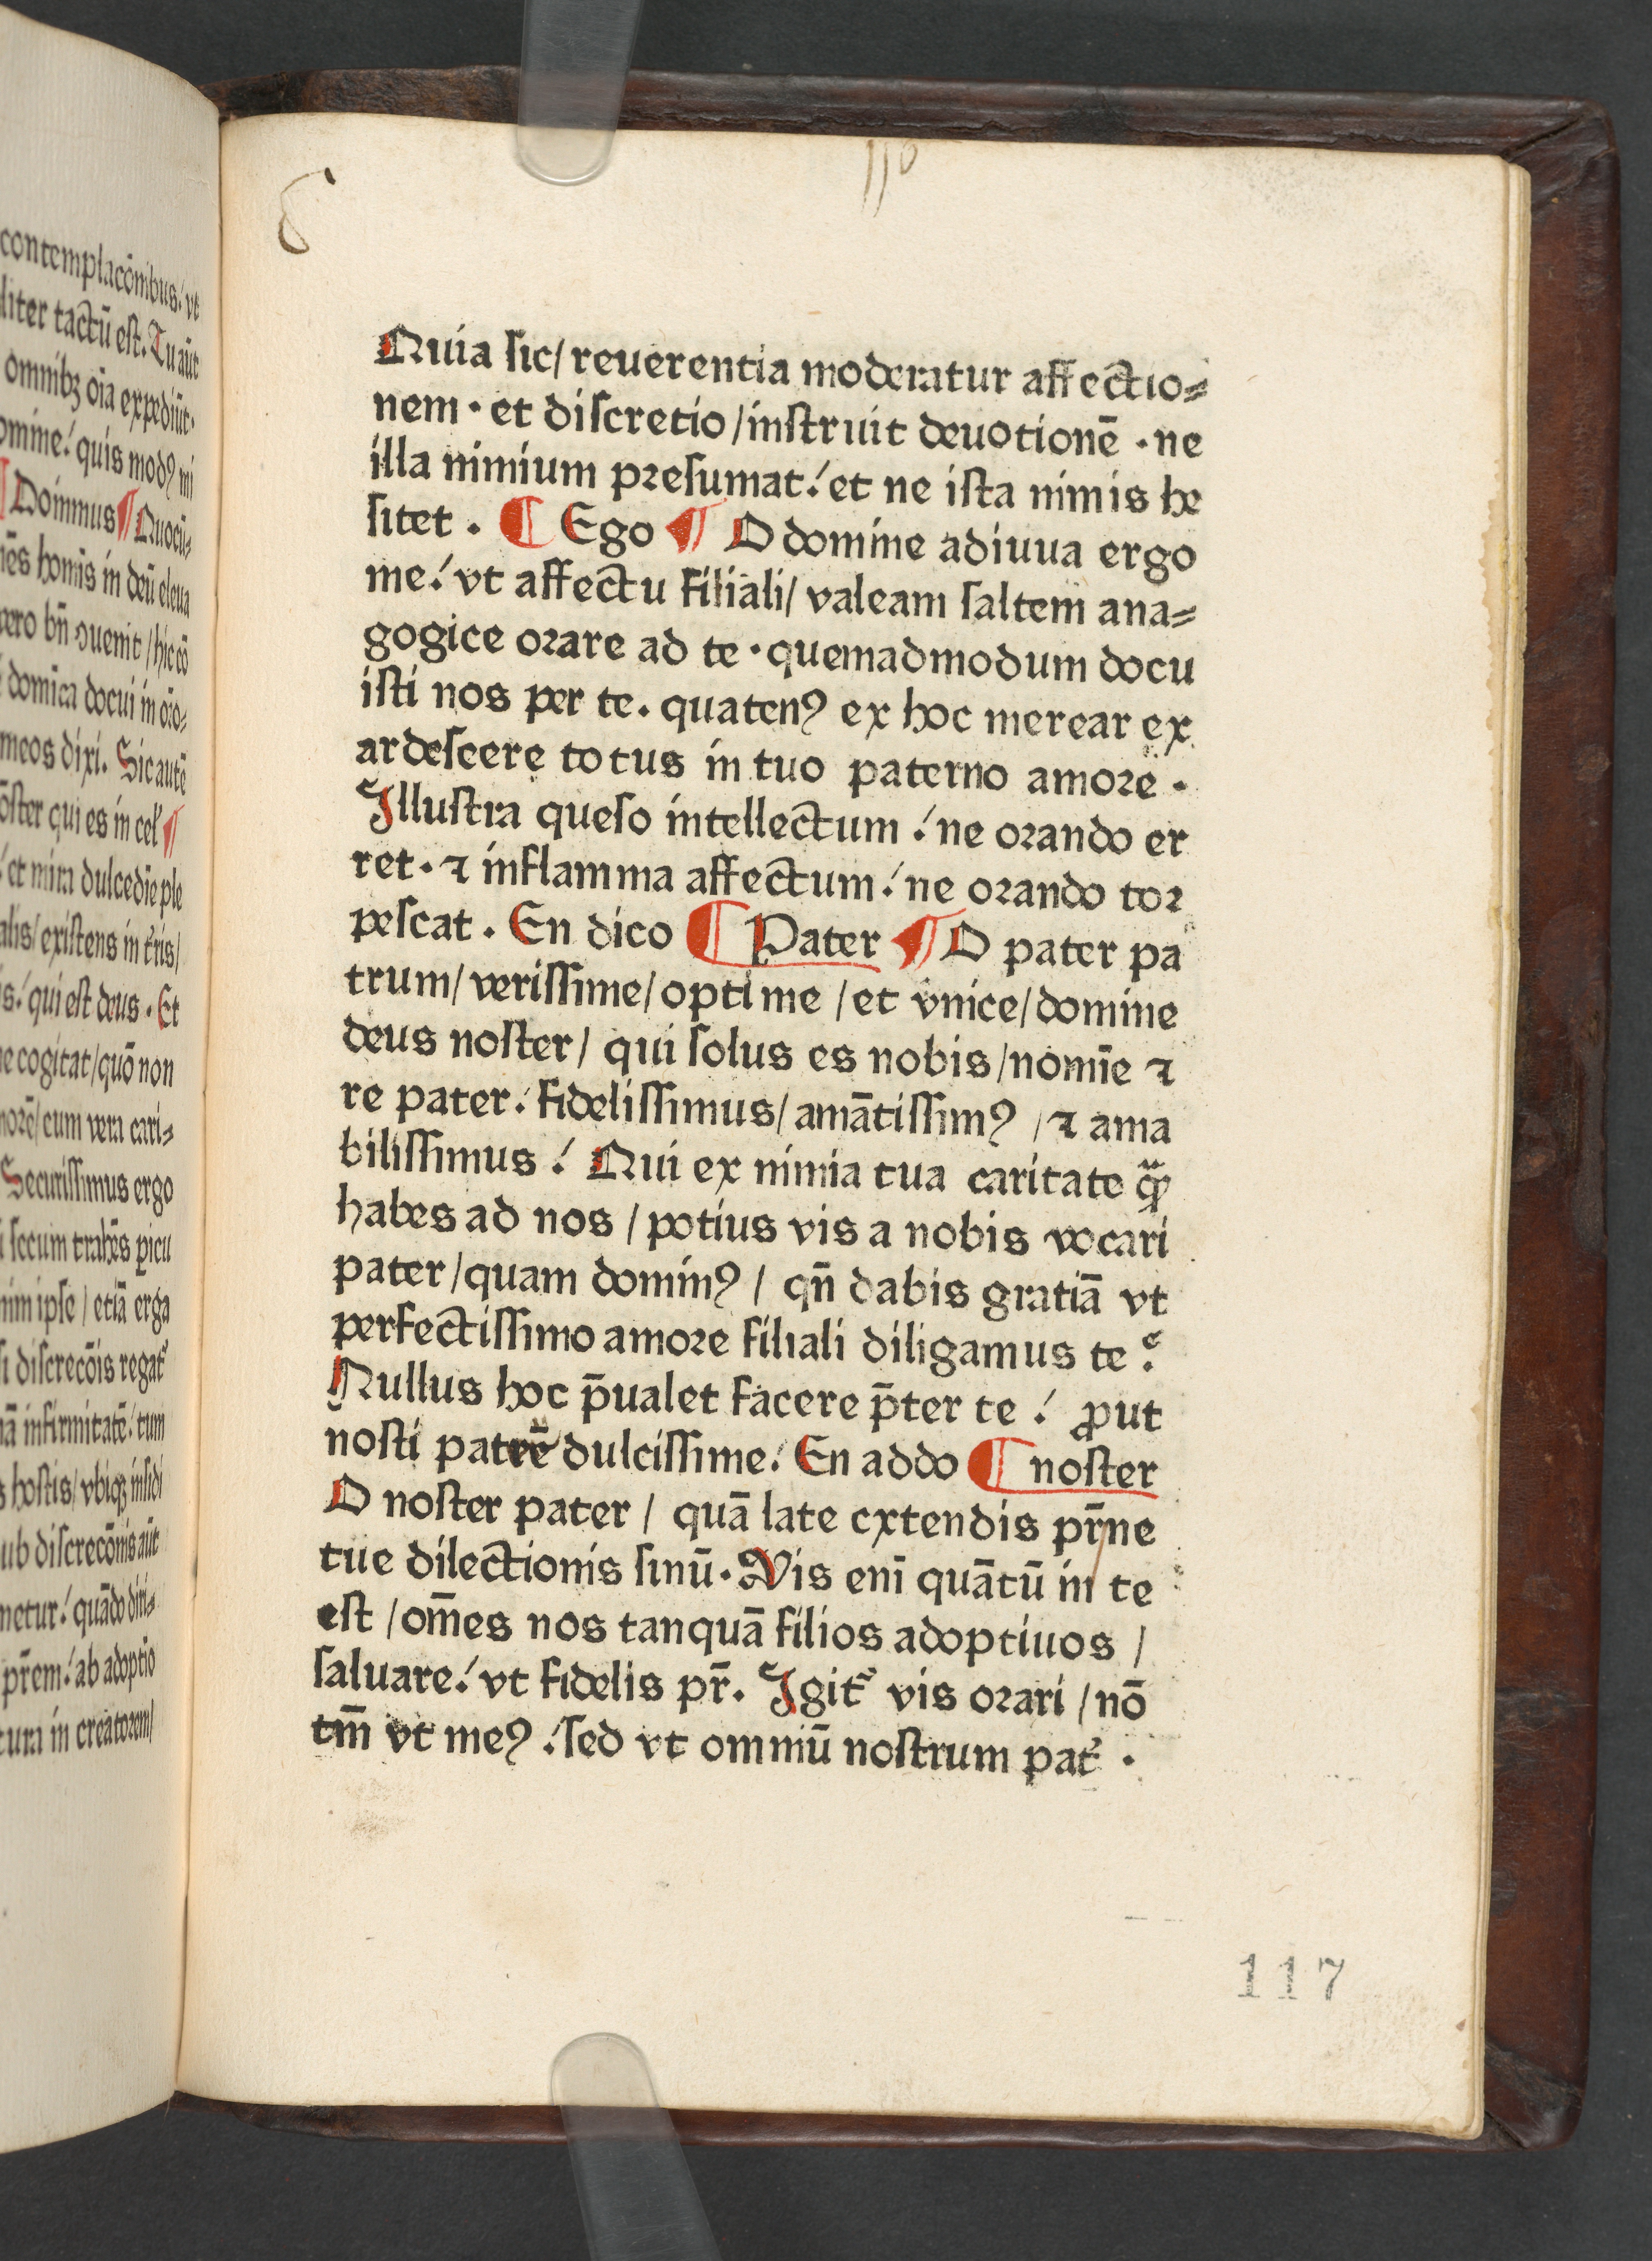 contemplacōnibus/ vt
liter tactū est. Tu aūt
omnibꝫ oīa expediūt.
omine/ quis modꝰ mi
¶ Dominus ¶ Quocū⸗
hoīs in deū eleua
vero bn̄ ꝯuenit / hic eō
domīca docui in oro⸗
meos dixi. Sic autē
qui es in cel ¶
et mira dulcedīe ple
alis/ existens in
qui est deus . Et
cogitat/ quō non
cum vera cari⸗
Securissimus ergo
secum trahēs picu
nim ipse / etiā erga
si discrecōis regat
infirmitatē/ tum
hostis/ vbiqꝫ insidi
ub discrecōnis aūt
netur/ quādo diri⸗
pr̄em/ ab adoptio
tura in creatorem/
8
110
Quia sic/ reuerentia moderatur affectio⸗
nem · et discretio / instruit deuotionē · ne
illa nimium presumat/ et ne ista nimis he
sitet . ¶ Ego ¶ O domine adiuua ergo
me/ vt affectu filiali/ valeam saltem ana⸗
gogice orare ad te · quemadmodum docu
isti nos per te. quatenꝰ ex hoc merear ex
ardescere totus in tuo paterno amore ·
Illustra queso intellectum / ne orando er
ret · ⁊ inflamma affectum / ne orando tor
pescat . En dico ¶ Pater ¶ O pater pa
trum/ verissime/ optime / et vnice/ domine
deus noster/ qui solus es nobis/ nomīe ⁊
re pater / fidelissimus/ amātissimꝰ / ⁊ ama
bilissimus / Qui ex nimia tua caritate qua
habes ad nos / potius vis a nobis vocari
pater / quam dominꝰ / qn̄ dabis gratiā vt
perfectissimo amore filiali diligamus te ?
Nullus hoc p̄ualet facere p̄ter te / ꝓut
nosti patrē dulcissime/ En addo ¶ noster
O noster pater / quā late extendis pr̄ne
tue dilectionis sinū · Vis enī quātū in te
est / om̄es nos tanquā filios adoptiuos /
saluare/ vt fidelis pr̄. Igit᷑ vis orari / nō
tm̄ vt meꝰ / sed vt omniū nostrum pat᷑ .
117